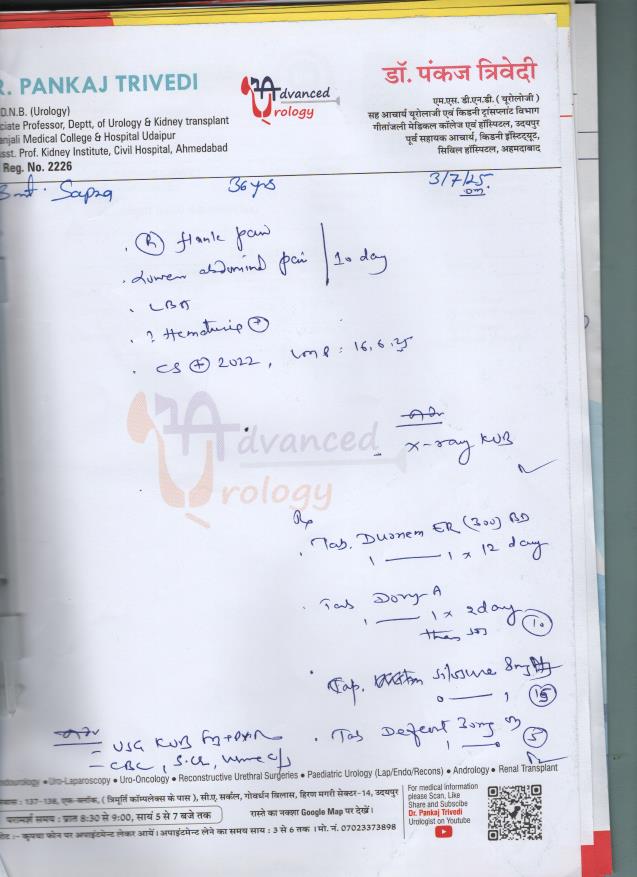 R. PANKAJ TRIVEDI
D.N.B. (Urology)
ciate Professor, Deptt. of Urology & Kidney transplant
anjali Medical College & Hospital Udaipur
sst. Prof. Kidney Institute, Civil Hospital, Ahmedabad
Reg. No. 2226
Advanced
Urology
डॉ. पंकज त्रिवेदी
एम.एस. डी.एन.बी. ( यूरोलोजी )
सह आचार्य यूरोलाजी एवं किडनी ट्रांसप्लांट विभाग
गीतांजली मेडिकल कॉलेज एवं हॉस्पिटल, उदयपुर
पूर्व सहायक आचार्य, किडनी इंस्टिट्युट,
सिविल हॉस्पिटल, अहमदाबाद
36 yrs 3/7/25
. (R) flank pain
. Lower abdominal pain | 10 day
. LBA
. ? Hematuria (+)
. CS (+) 2022, LMP : 16.6.25
Adv
- x-ray KUB
Advanced
Urology
Rx
. Tab. ER (300) BD
1 —— 1 x 12 day
. Tab A
1 —— 1 x 2 day
then sos (10)
. Cap. 8mg
0 —— 1 (15)
. Tab 30mg (5)
1 —— 0
Adv
- USG KUB
- CBC, urine c/s
ndourology • Uro-Laparoscopy • Uro-Oncology • Reconstructive Urethral Surgeries • Paediatric Urology (Lap/Endo/Recons) • Andrology • Renal Transplant
वास : 137-138, एक-ब्लॉक, ( त्रिमूर्ति कॉम्पलेक्स के पास ), सी.ए. सर्कल, गोवर्धन विलास, हिरण मगरी सेक्टर-14, उदयपुर
परामर्श समय : प्रात 8:30 से 9:00, सायं 5 से 7 बजे तक
रास्ते का नक्शा Google Map पर देखें।
नोट :- कृपया फोन पर अपाइंटमेन्ट लेकर आयें। अपाइंटमेन्ट लेने का समय साय : 3 से 6 तक । मो. नं. 07023373898
For medical information
please Scan, Like
Share and Subscibe
Dr. Pankaj Trivedi
Urologist on Youtube